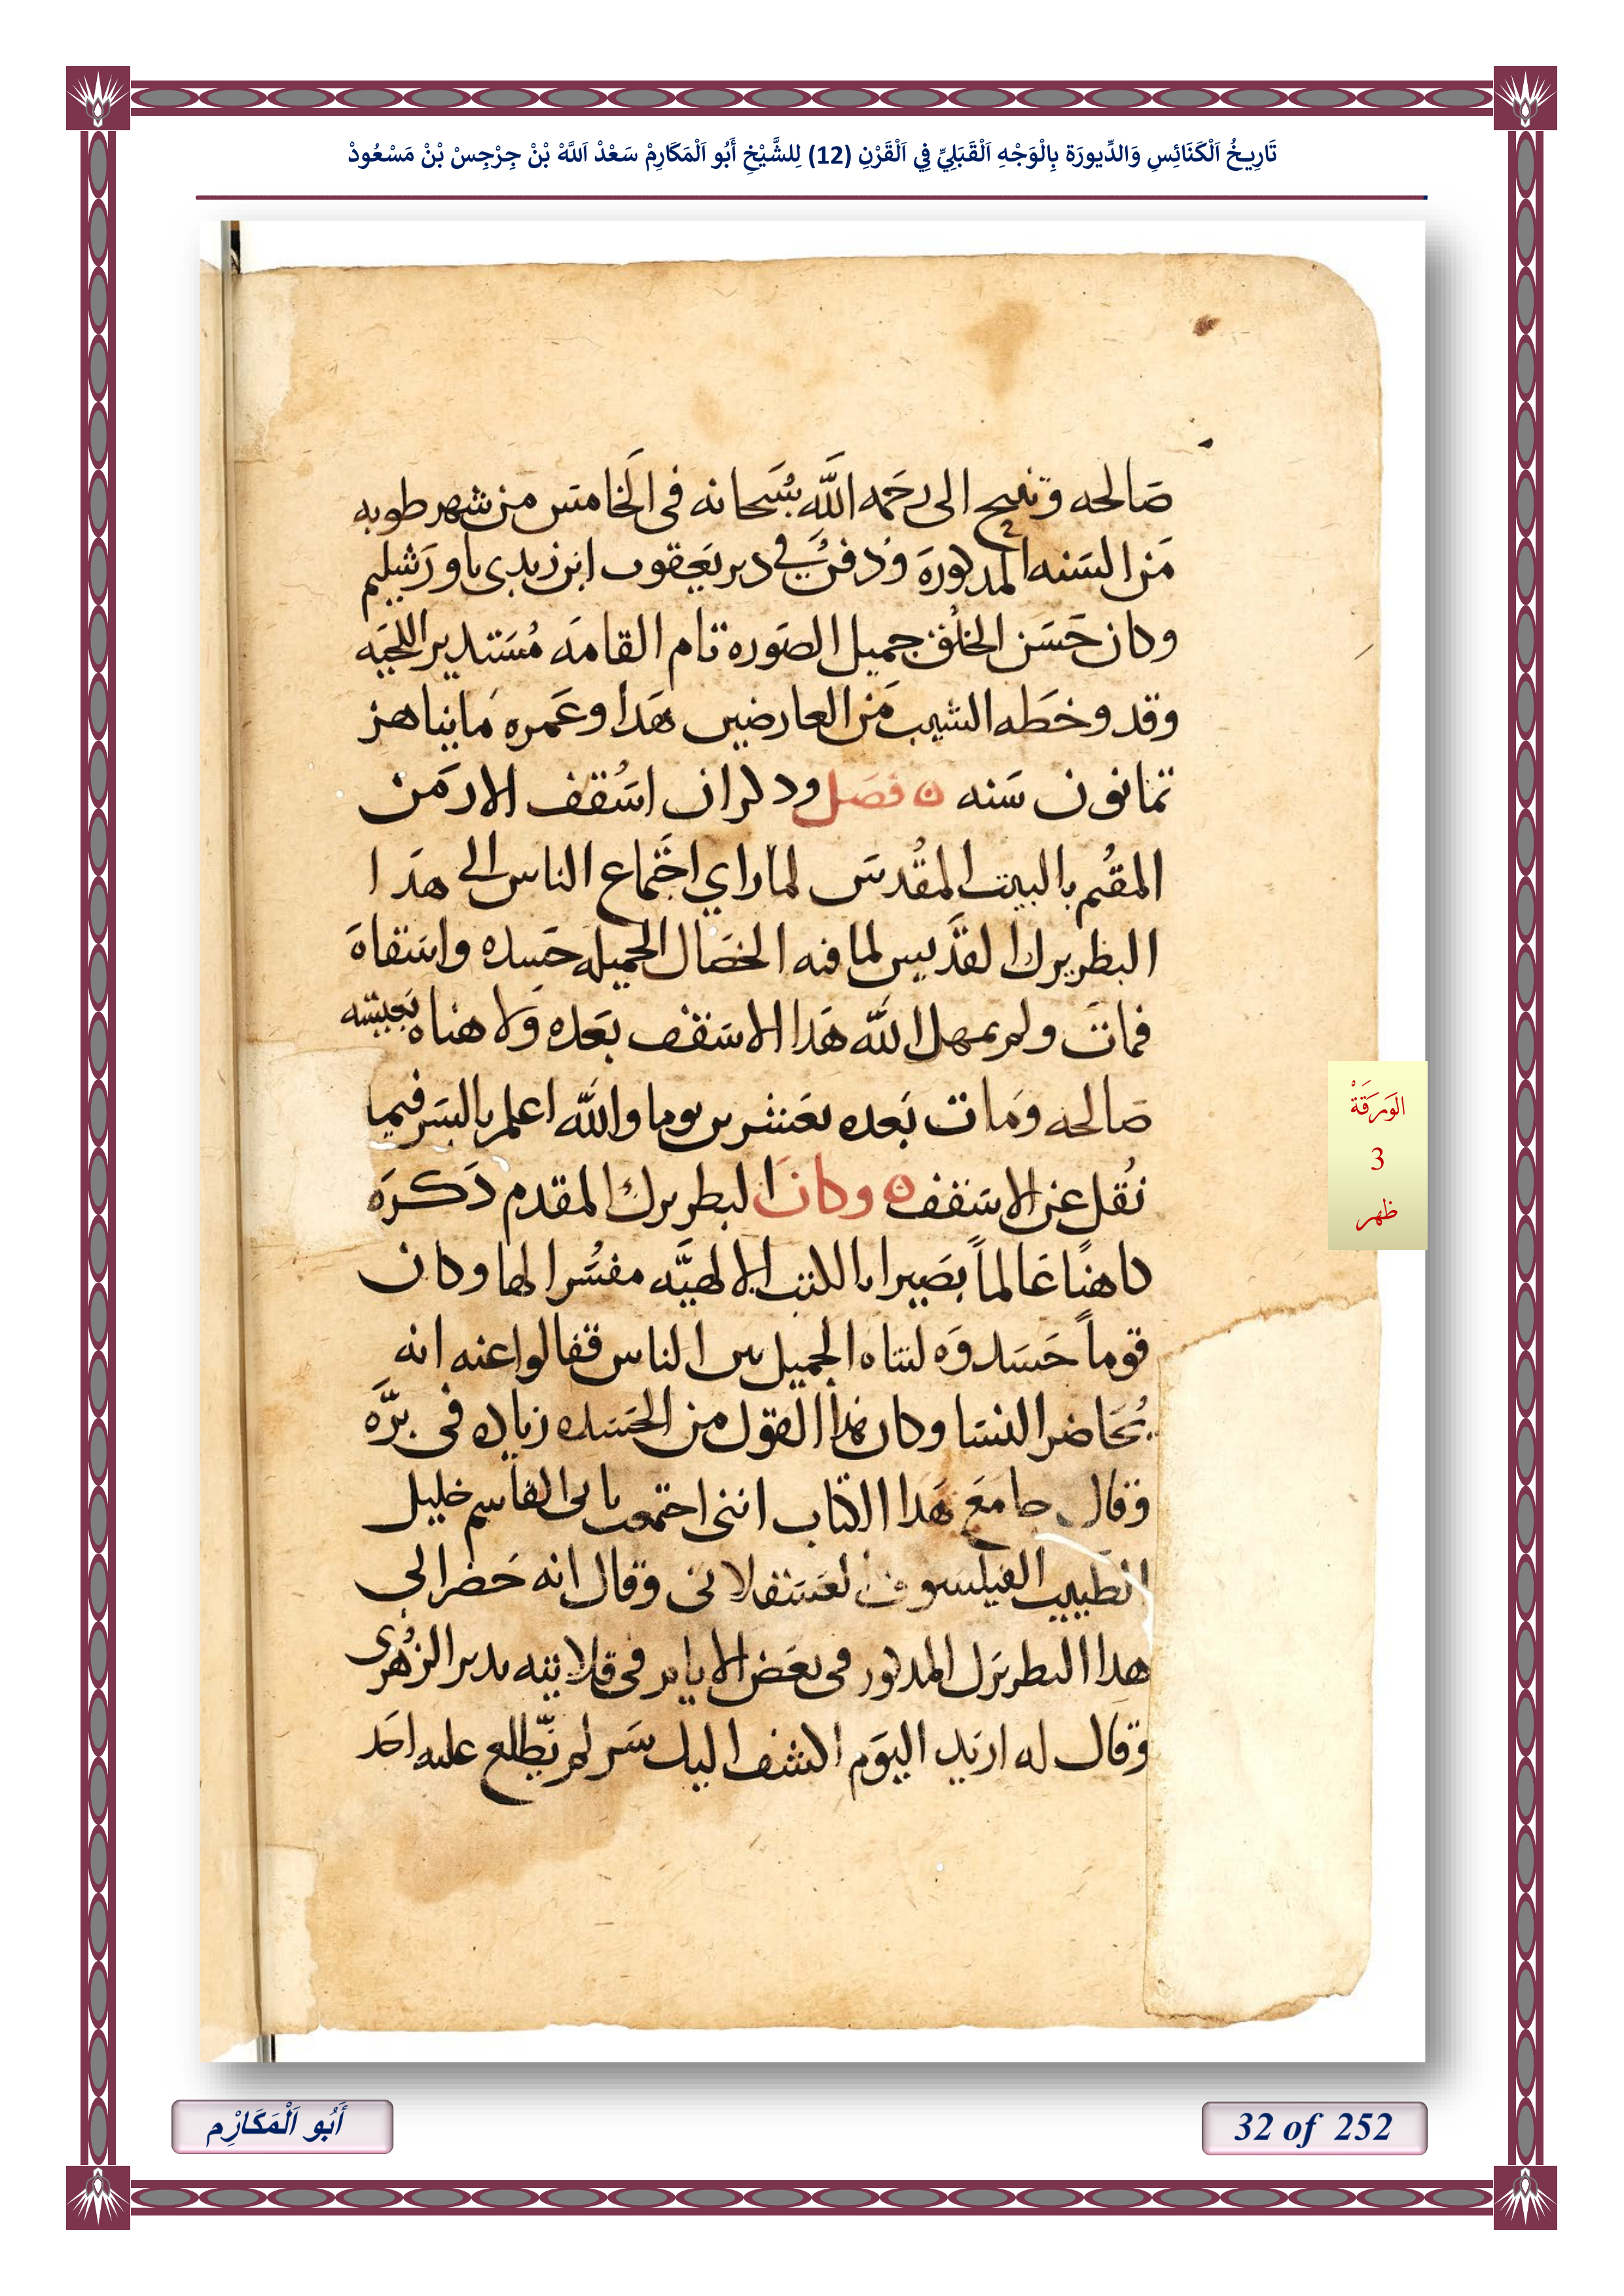 تَارِيخُ اَلْكَنَائِسِ وَالدِّيورَة بِالْوَجْهِ اَلْقَبَلِيِّ فِي اَلْقَرْنِ (12) لِلشَّيْخِ أَبُو اَلْمَكَارِمْ سَعْدْ اَللَّهْ بْنْ جِرْجِسْ بْنْ مَسْعُودْ
صَالحه وتنيح الى رحَمه اللَّه سُبَحانه فى الَخامس من شهر طوبه
مَن السَنه المدكورهَ ودفن في دير يَعقوب ابن زبدى باورَشليم
وكان حَسَن الخلُق جميل الصَوره تام القامَه مُسَتدير اللحَيه
وقد وخطَه الشيب مَن العارضين هَدا وعَمره مَا يناهز
تمانون سَنه ن فصَل ودكر ان اسُقف الارمَن
المقُيم بالبيت المقُدسَ لما راي اجَتماع الناس الى هدَا
البطريرك القدَّيس لما فيه الخصَال الجميله حَسده واسَتقاهَ
فماتَ ولم يمهل اللَّه هَدا الاسَقف بعَده وَلا هناه بَعيشه
صَالحه ومَات بَعده بعَشرين يوما واللَّه اعلم بالسَر فيما
نُقل عن الاسَقف ن وكانَ البطريرك المقدم دَكرهَ
كاهنًا عَالماً بصَيرا بالكتب الالهيَّه مفسُرا لها وكان
قوماً حَسَدوَه لتناه الجميل بين الناس فقالوا عنه انه
يُحَاضر النسَا وكان هدا القول من الحَسَده زياده فى برَّه
وقال جامعَ هَدا الكتاب اننى اجتمعت بابى القاسم خليل
الطَبيب الفيلسَوف العسَقلانى وقال انه حَضر الى
هدا البطريرَك المدكور فى بعَض الايام فى قلايته بدير الزهُرى
وقال له اريد اليوَم اكشف اليك سَر لم يَّطلع عليه احَد
الوَرَقَةْ
3
ظهر
أَبُو اَلْمَكَارِم
32 of 252